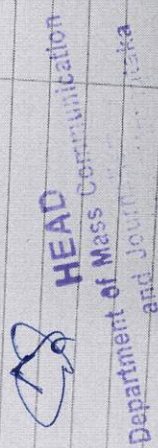 HEAD
Department of Mass Communication
and Journ